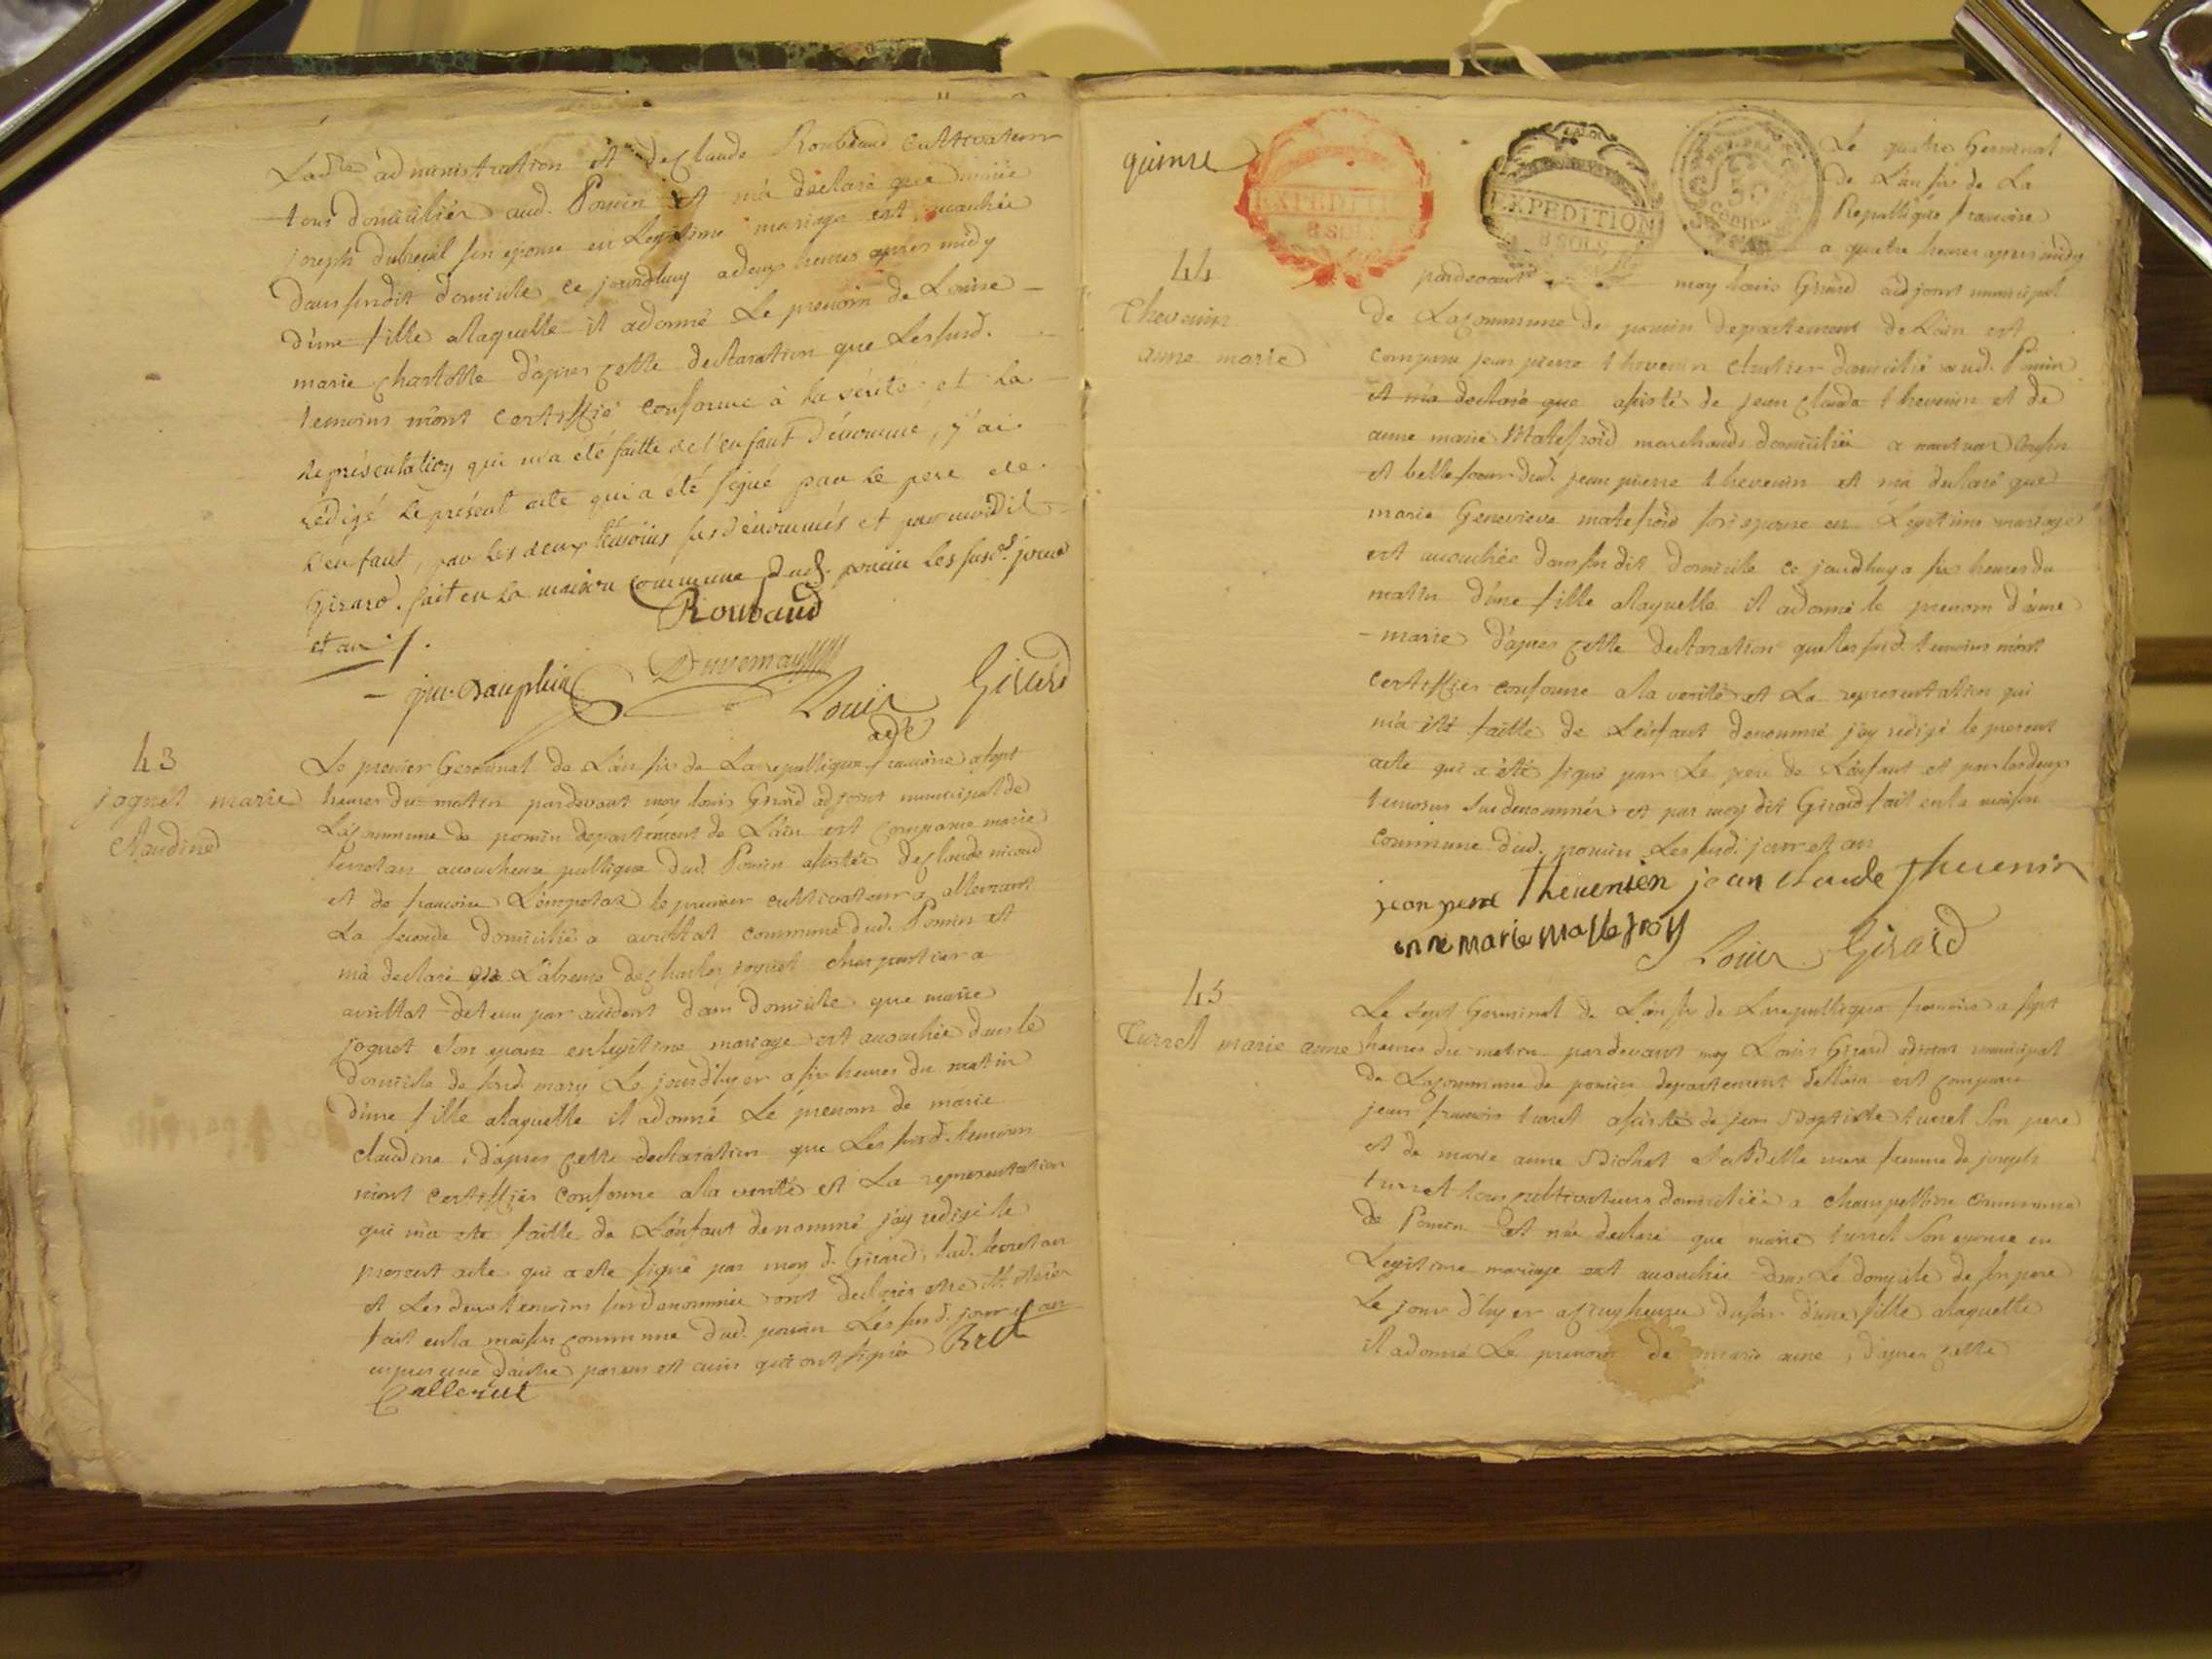 Ladte administration et de Claude Roubaud Cultivateur
tous domiciliés aud. Poncin et m'a déclaré que marie
joseph dubreuil son epouse en Legitime mariage est acouchée
dans sondit domicile ce jourdhuy a deux heures apres midy
d'une fille alaquelle il adonné Le prenom de Louise
marie charlotte d'apres cette declaration que Les susd.
temoins m'ont certiffié conforme à la vérité et La
Représentation qui m'a été faitte de l'enfant dénommé, j'ai
rédigé le présent acte qui a été signé par le pere de
L'enfant, par les deux témoins susdénommés et par moidit
Girard. fait en la maison commune dud. poncin les susd. jour
et an
Roubaud
Duvernay
Louis Girard
adt
43
joguet marie
Claudine
Le premier Germinal de L'an six de La republique francoise a sept
heures du matin pardevant moy Louis Girard adjoint municipal de
La commune de poncin departement de L'ain est comparue marie
acoucheuse publique dud. Poncin assistée de claude nicoud
et de francoise Lempereur le premier cultivateur a allement
La seconde domiciliée a avrillat commune dud. Poncin et
m'a declaré que L'absence de charles joguet charpentier a
avrillat detenu par accident dans domicile que marie
joguet son epouse en legitime mariage est acouchée dans le
domicile de sond. mary Le jourd'hyer a six heures du matin
d'une fille alaquelle il adonné Le prenom de marie
claudine, d'apres cette declaration que Les susd. temoins
m'ont certiffiés conforme ala verité et La representation
qui m'a ete faitte de L'enfant denommé j'ay redigé le
present acte qui a ete signé par moy d. Girard, lad.
et Les deux temoins susdenommés ont declarés etre illiterés
fait en la maison commune dud. poncin Les susd. jour et an
en presence d'autre parens et amis qui ont signés Bret
Callerut
quinze
EXPEDITION
8 SOLS
EXPEDITION
8 SOLS
Le quatre Germinal
de L'an six de La
Republique francoise
a quatre heures apres midy
44
Thevenin
anne marie
pardevant moy louis Girard adjoint municipal
de La commune de poncin departement de L'ain est
comparu jean pierre thevenin domicilié aud. Poncin
et m'a declaré que assisté de jean claude thevenin et de
anne marie Matefroid marchands domiciliés a nantua Cousin
et belle soeur dud. jean pierre thevenin et m'a declaré que
marie Genevieve matefroid son epouse en Legitime mariage
est acouchée dans sondit domicile ce jourdhuy a six heures du
matin d'une fille alaquelle il adonné le prenom d'anne
marie d'apres cette declaration que les susd. temoins m'ont
certiffiés conforme ala verité et La representation qui
m'a été faitte de L'enfant denommé j'ay redigé le present
acte qui a été signé par Le pere de L'enfant et par les deux
temoins susdenommés et par moy dit Girard fait en la maison
commune dud. poncin Les susd. jour et an
jean pierre Thevenien jean claude Thevenin
anne marie Mattefroy
Louis Girard
45
Turrel marie anne
Le sept Germinal de L'an six de La republique francoise a sept
heures du matin pardevant moy Louis Girard adjoint municipal
de La commune de poncin departement de l'ain est comparu
jean francois turrel assisté de jean Baptiste turrel son pere
et de marie anne Bichat sa Belle mere femme de joseph
turrel tous cultivateurs domiciliés a commune
de Poncin et m'a declaré que marie turrel son epouse en
Legitime mariage est acouchée dans Le domicile de son pere
Le jour d'hyer a cinq heures du soir d'une fille alaquelle
il adonné Le prenom de marie anne, d'apres cette